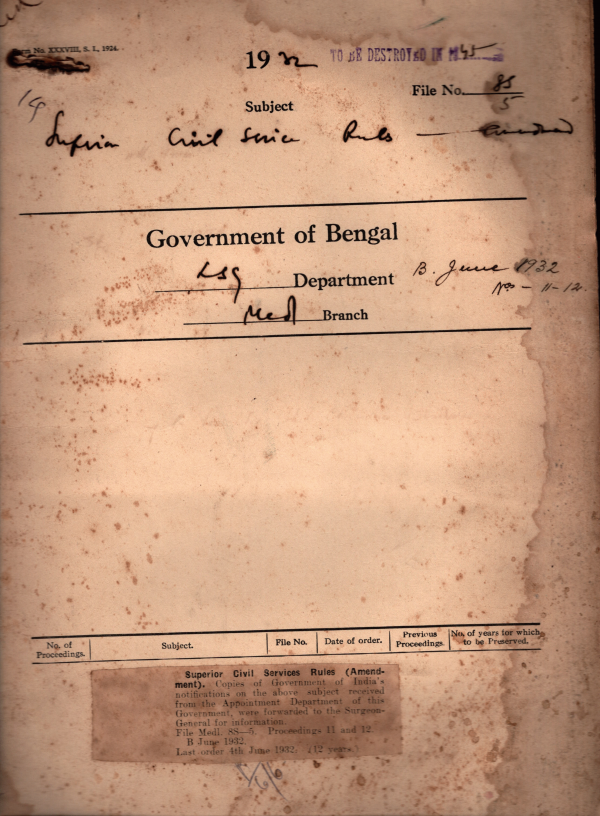 No. XXXVIII, S. I., 1924.
1932 TO BE DESTROYED IN 1945
File No. 8S/5
Subject
Superior Civil Service Rules —
Government of Bengal
LSG Department B. June 1932
Nos - 11-12.
Medl Branch
No. of Proceedings. Subject. File No. Date of order. Previous Proceedings. No. of years for which to be Preserved.
Superior Civil Services Rules (Amend-
ment). Copies of Government of India's
notifications on the above subject received
from the Appointment Department of this
Government, were forwarded to the Surgeon-
General for information.
File Medl. 8S—5. Proceedings 11 and 12
B June 1932.
Last order 4th June 1932. (12 years.)